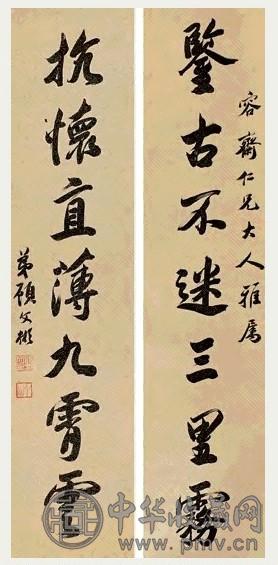 容齋仁兄大人雅屬
鑒古不迷三里霧
抗懷直薄九霄雲
弟顧文彬
中华收藏网
www.pmv.cn